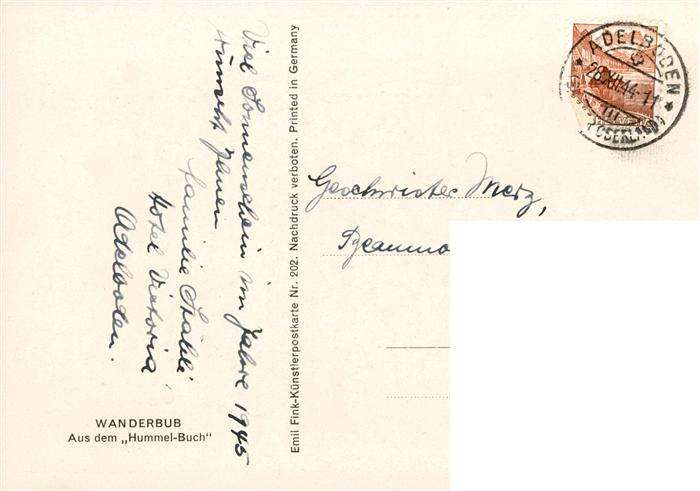 Viel Sonnenschein im Jahre 1945
wünscht Ihnen
Familie Stähli
Hotel Victoria
Adelboden.
WANDERBUB
Aus dem „Hummel-Buch"
Emil Fink-Künstlerpostkarte Nr. 202. Nachdruck verboten. Printed in Germany
ADELBODEN
28.XII.44
Geschwister Merz,